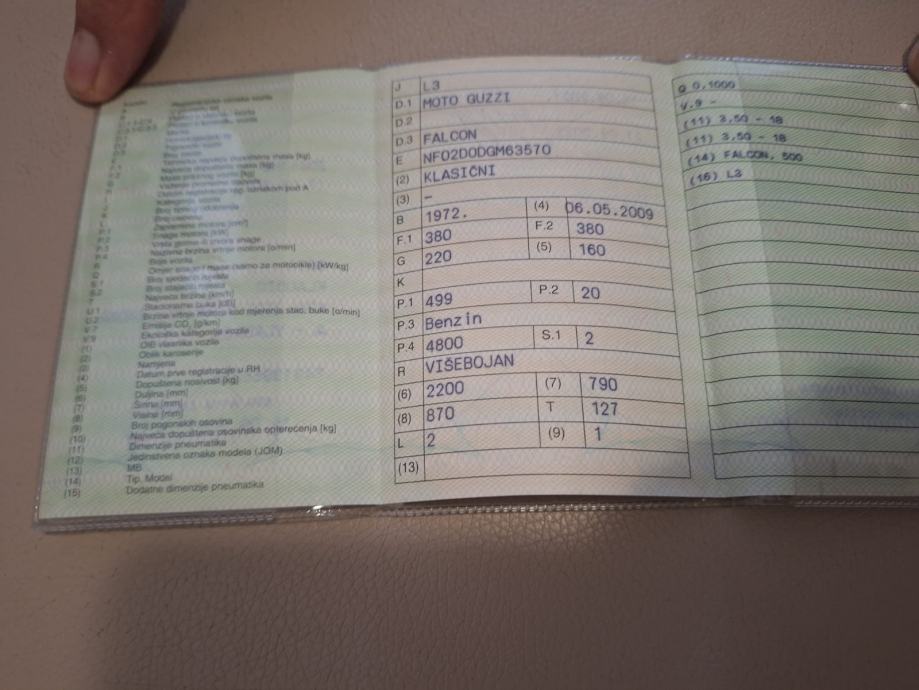 Registarska oznaka vozila
Marka
Najveća dopuštena masa [kg]
Kategorija vozila
Boja vozila
Omjer snage i mase (samo za motocikle) [kW/kg]
Broj sjedećih mjesta
Broj stajaćih mjesta
Najveća brzina [km/h]
Stacionarna buka [dB]
Brzina vrtnje motora kod mjerenja stac. buke [o/min]
Emisija CO₂ [g/km]
V.9 Ekološka kategorija vozila
(1) OIB vlasnika vozila
(2) Oblik karoserije
(3) Namjena
(4) Datum prve registracije u RH
(5) Dopuštena nosivost [kg]
(6) Duljina [mm]
(7) Širina [mm]
(8) Visina [mm]
(9) Broj pogonskih osovina
(10) Najveća dopuštena osovinska opterećenja [kg]
(11) Dimenzije pneumatika
(12) Jedinstvena oznaka modela (JOM)
(13) MB
(14) Tip, Model
(15) Dodatne dimenzije pneumatika
J L3
D.1 MOTO GUZZI
D.2
D.3 FALCON
E NF02D0DGM63570
(2) KLASIČNI
(3) –
B 1972. (4) 06.05.2009
F.1 380 F.2 380
G 220 (5) 160
K
P.1 499 P.2 20
P.3 Benzin
P.4 4800 S.1 2
R VIŠEBOJAN
(6) 2200 (7) 790
(8) 870 T 127
L 2 (9) 1
(13)
Q 0,1000
V.9 -
(11) 3,50 - 18
(11) 3,50 - 18
(14) FALCON, 500
(16) L3